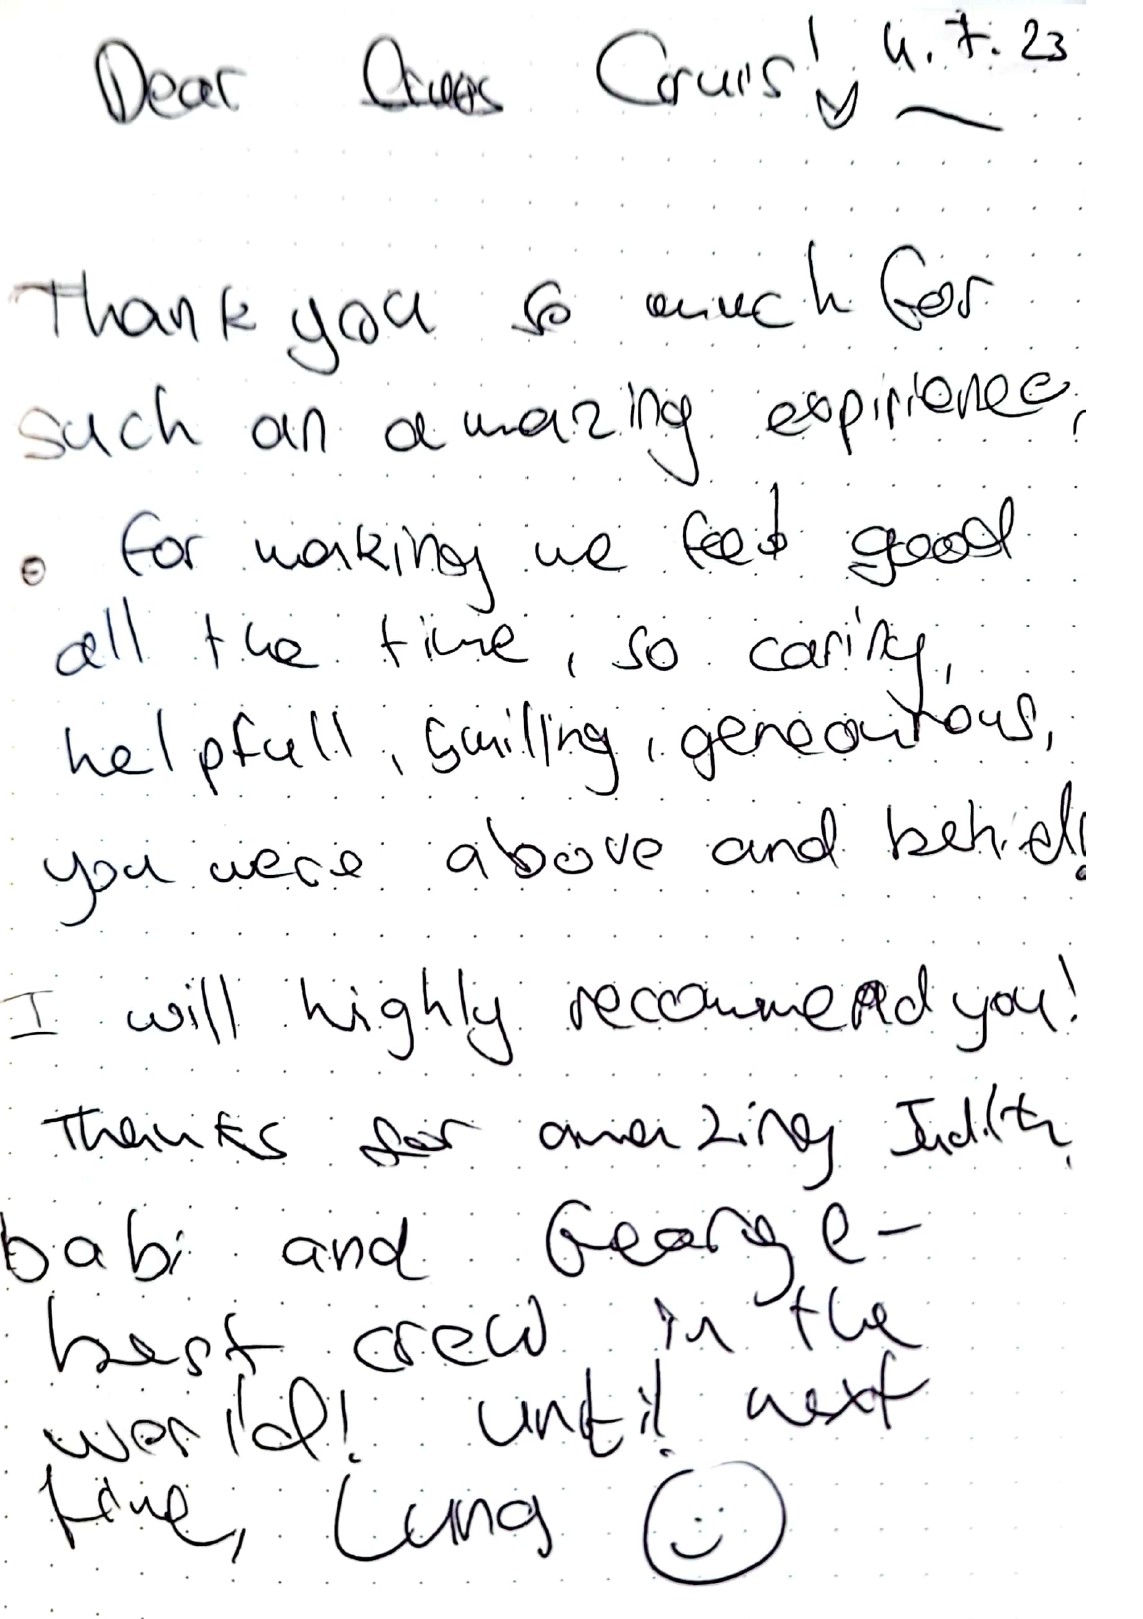 Dear Cruis! 4.7.23
Thank you so much for
such an amazing expirience,
for making me feel good
all the time, so caring,
helpfull, smilling, geneourous,
you were above and behid!
I will highly recommend you!
Thanks for amazing Judith,
babi and George-
best crew in the
world! until next
time,